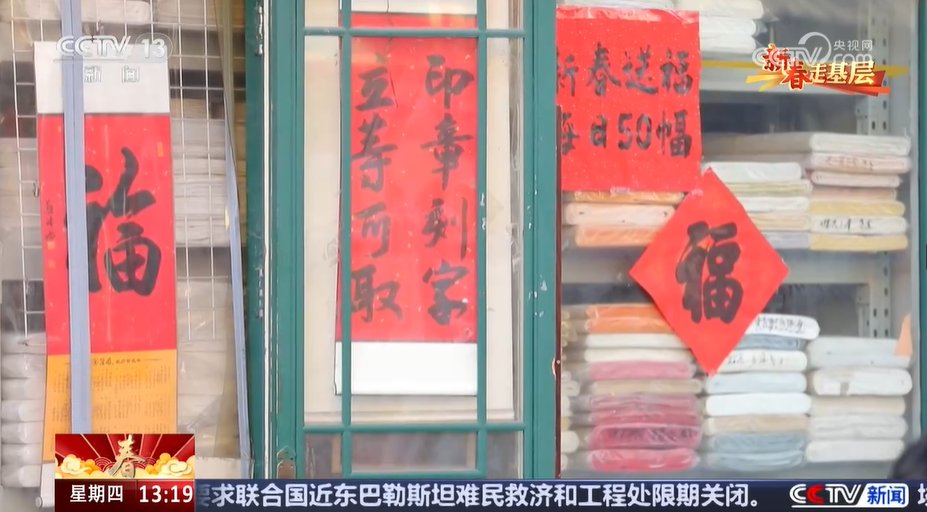 CCTV 13
新闻
央视网
新春走基层
福
印章刻字
立等可取
新春送福
每日50幅
福
春
星期四 13:19
要求联合国近东巴勒斯坦难民救济和工程处限期关闭。
CCTV 新闻